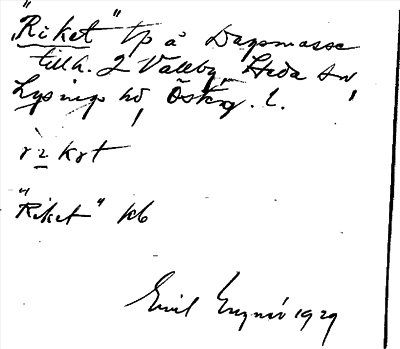 "Riket" tp å Dagsmosse
tillh. 2 Valleby, Heda sn,
Lysings hd, Österg. l.
riket
"Riket" kb
Emil 1929